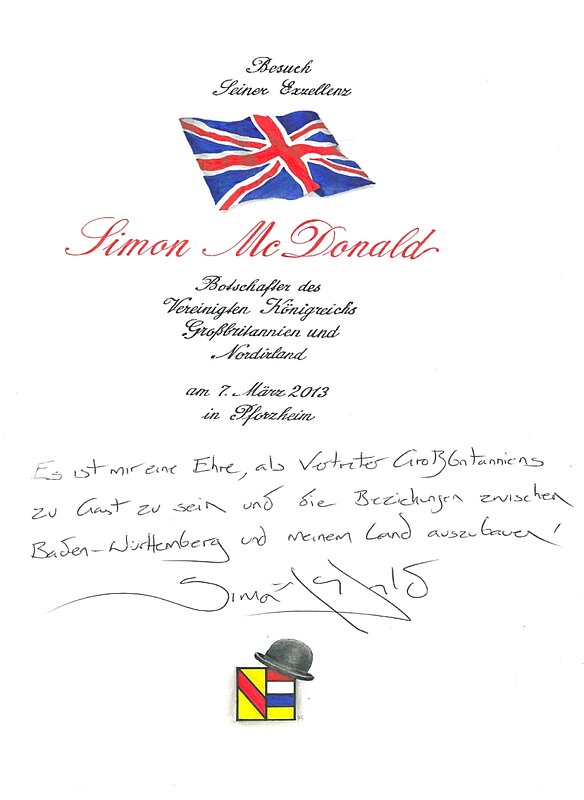 Besuch
Seiner Exzellenz
Simon McDonald
Botschafter des
Vereinigten Königreichs
Großbritannien und
Nordirland
am 7. März 2013
in Pforzheim
Es ist mir eine Ehre, als Vertreter Großbritanniens
zu Gast zu sein und die Beziehungen zwischen
Baden-Württemberg und meinem Land auszubauen!
Simon McDonald